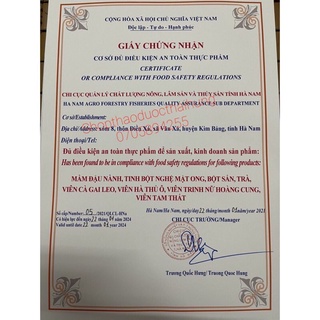 CỘNG HÒA XÃ HỘI CHỦ NGHĨA VIỆT NAM
Độc lập - Tự do - Hạnh phúc
GIẤY CHỨNG NHẬN
CƠ SỞ ĐỦ ĐIỀU KIỆN AN TOÀN THỰC PHẨM
CERTIFICATE
OF COMPLIANCE WITH FOOD SAFETY REGULATIONS
CHI CỤC QUẢN LÝ CHẤT LƯỢNG NÔNG, LÂM SẢN VÀ THỦY SẢN TỈNH HÀ NAM
HA NAM AGRO FORESTRY FISHERIES QUALITY ASSURANCE SUB DEPARTMENT
Cơ sở/Establishment:
Địa chỉ/Address: xóm 8, thôn Điền Xá, xã Văn Xá, huyện Kim Bảng, tỉnh Hà Nam
Điện thoại/Tel:
Đủ điều kiện an toàn thực phẩm để sản xuất, kinh doanh sản phẩm:
Has been found to be in compliance with food safety regulations for following products:
MẦM ĐẬU NÀNH, TINH BỘT NGHỆ MẬT ONG, BỘT SẮN, TRÀ,
VIÊN CÀ GAI LEO, VIÊN HÀ THỦ Ô, VIÊN TRINH NỮ HOÀNG CUNG,
VIÊN TAM THẤT
Số cấp/Number: 05 /2021/QLCL-HNa
Hà Nam/Ha Nam, ngày/day 22 tháng/month 01 năm/year 2021
Có hiệu lực đến ngày 22 tháng 01 năm 2024
CHI CỤC TRƯỞNG/Manager
Valid until date 22 month 01 year 2024
Trương Quốc Hưng/ Truong Quoc Hung